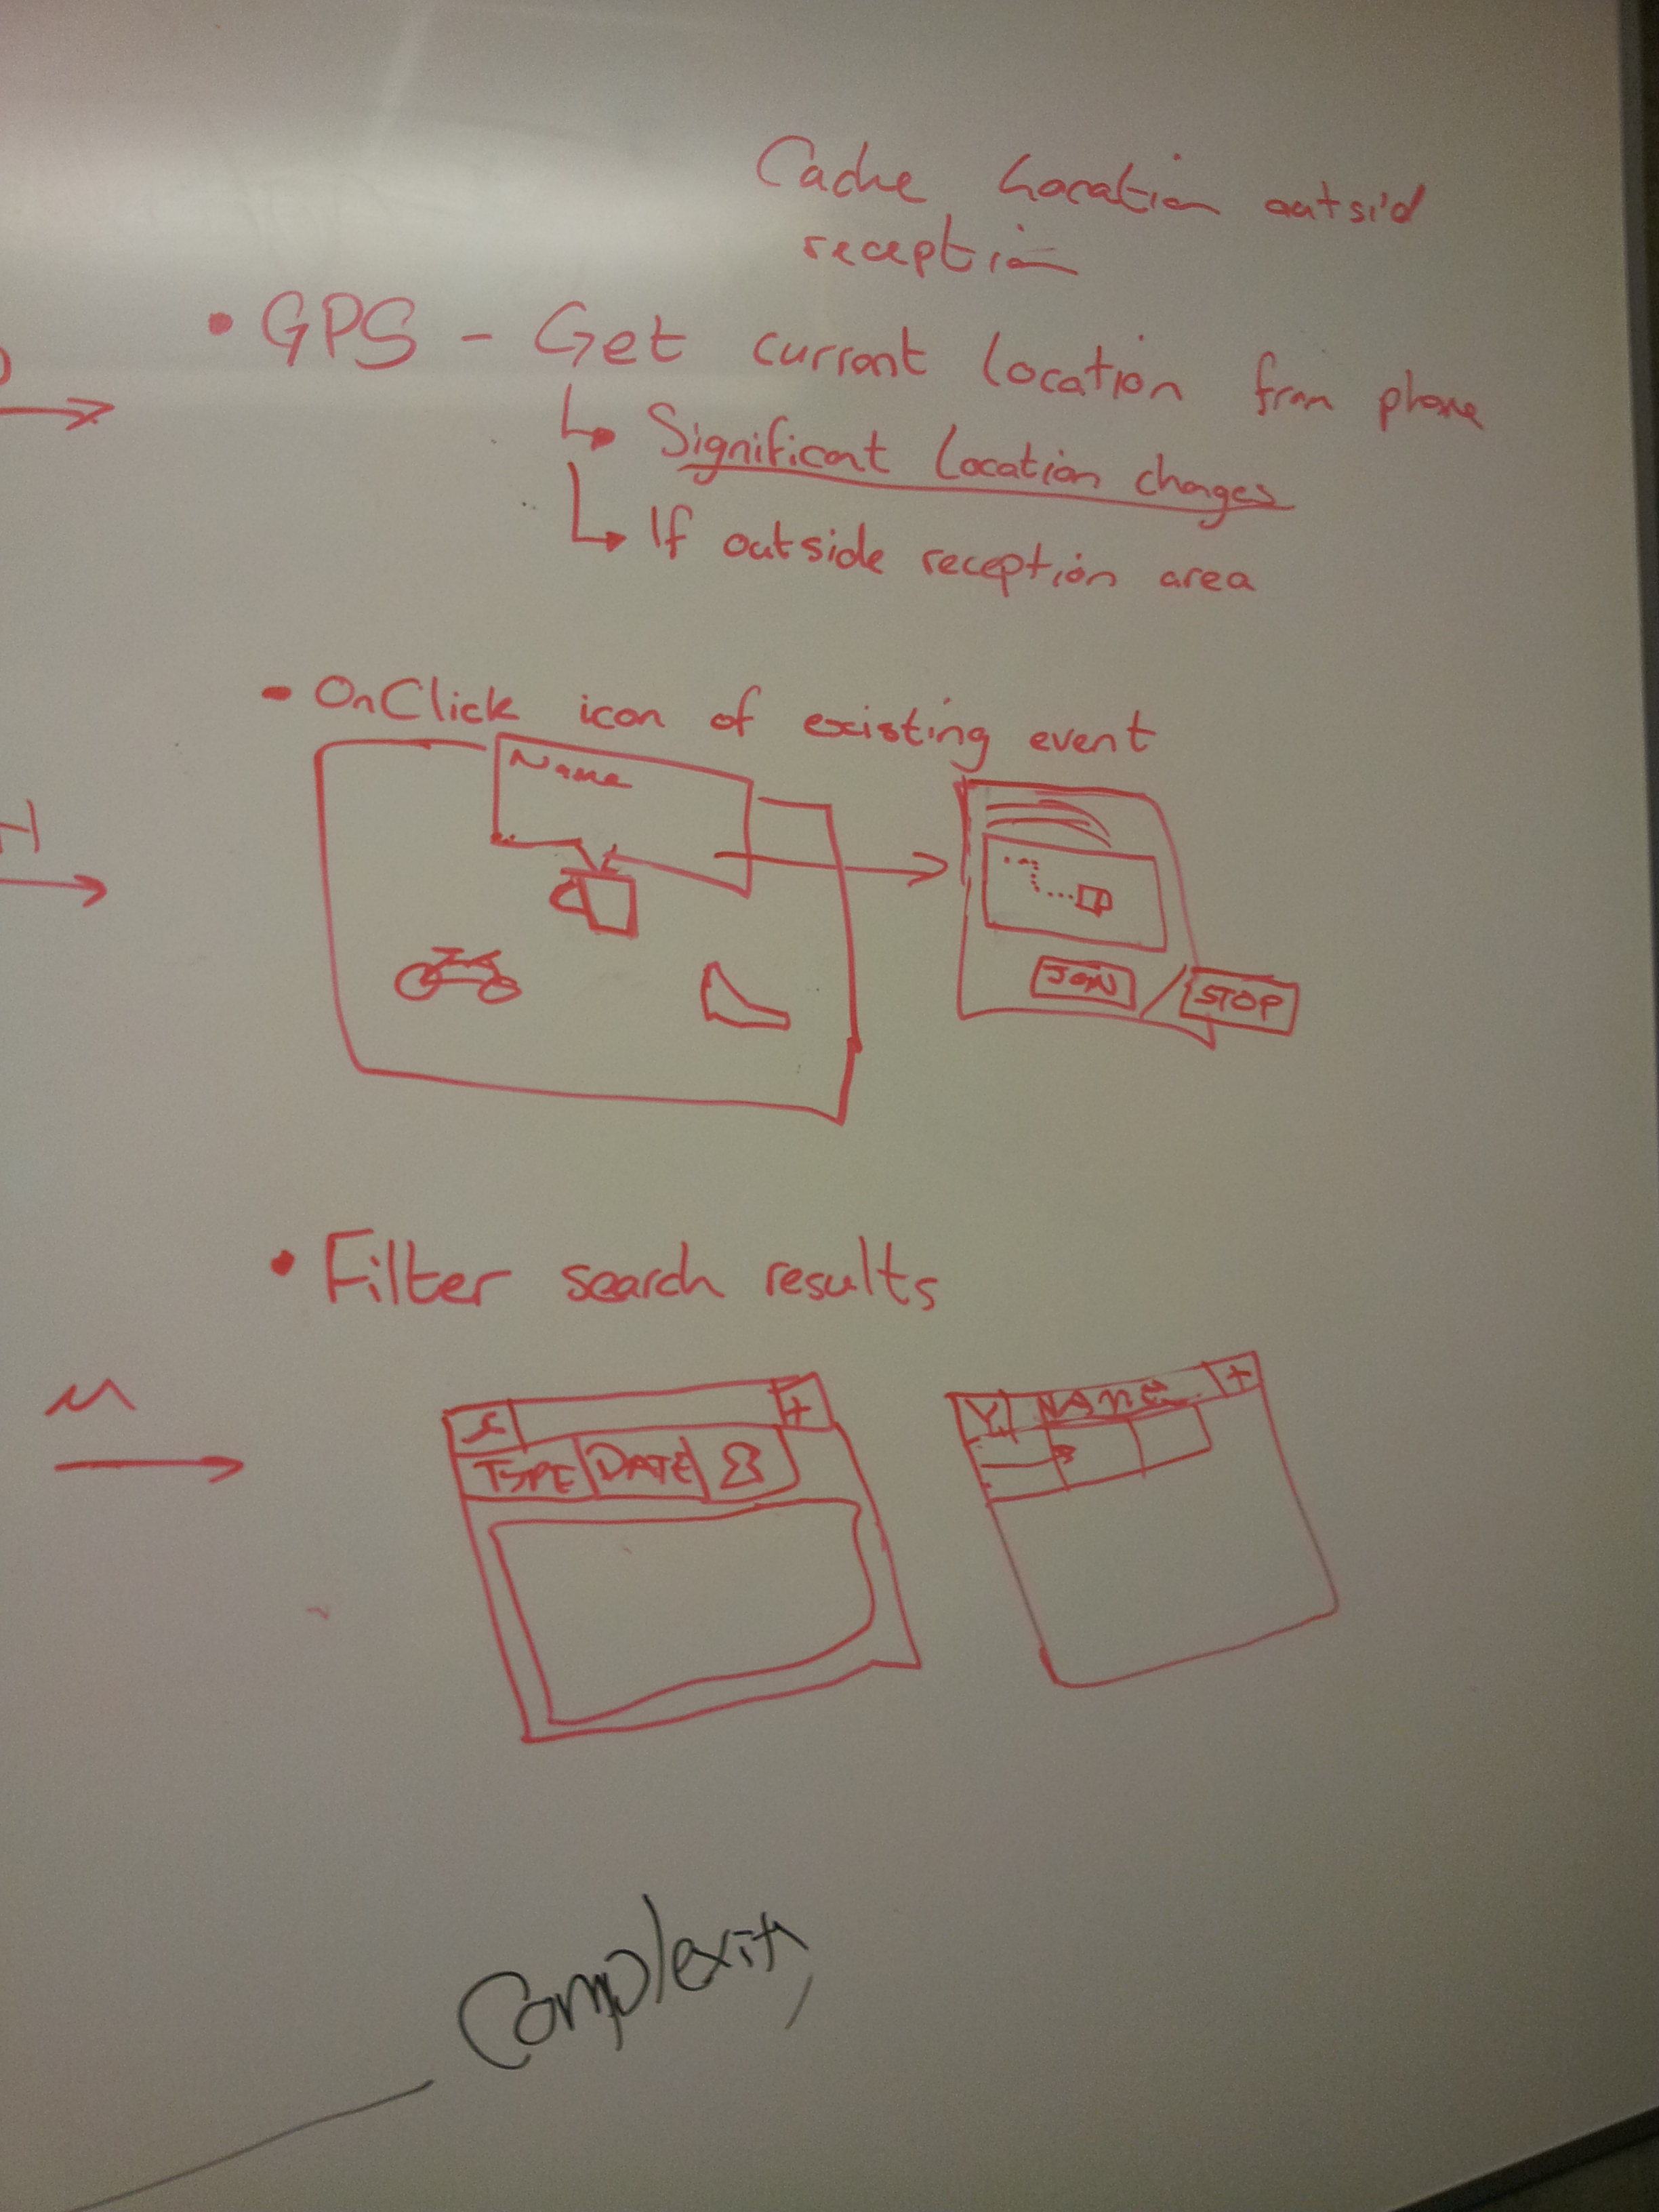 Cache Location outsid
reception
• GPS - Get current location from phone
Significant Location changes
If outside reception area
H
- OnClick icon of existing event
Name
JOIN / STOP
• Filter search results
M
+
TYPE DATE
NAME +
Complexity